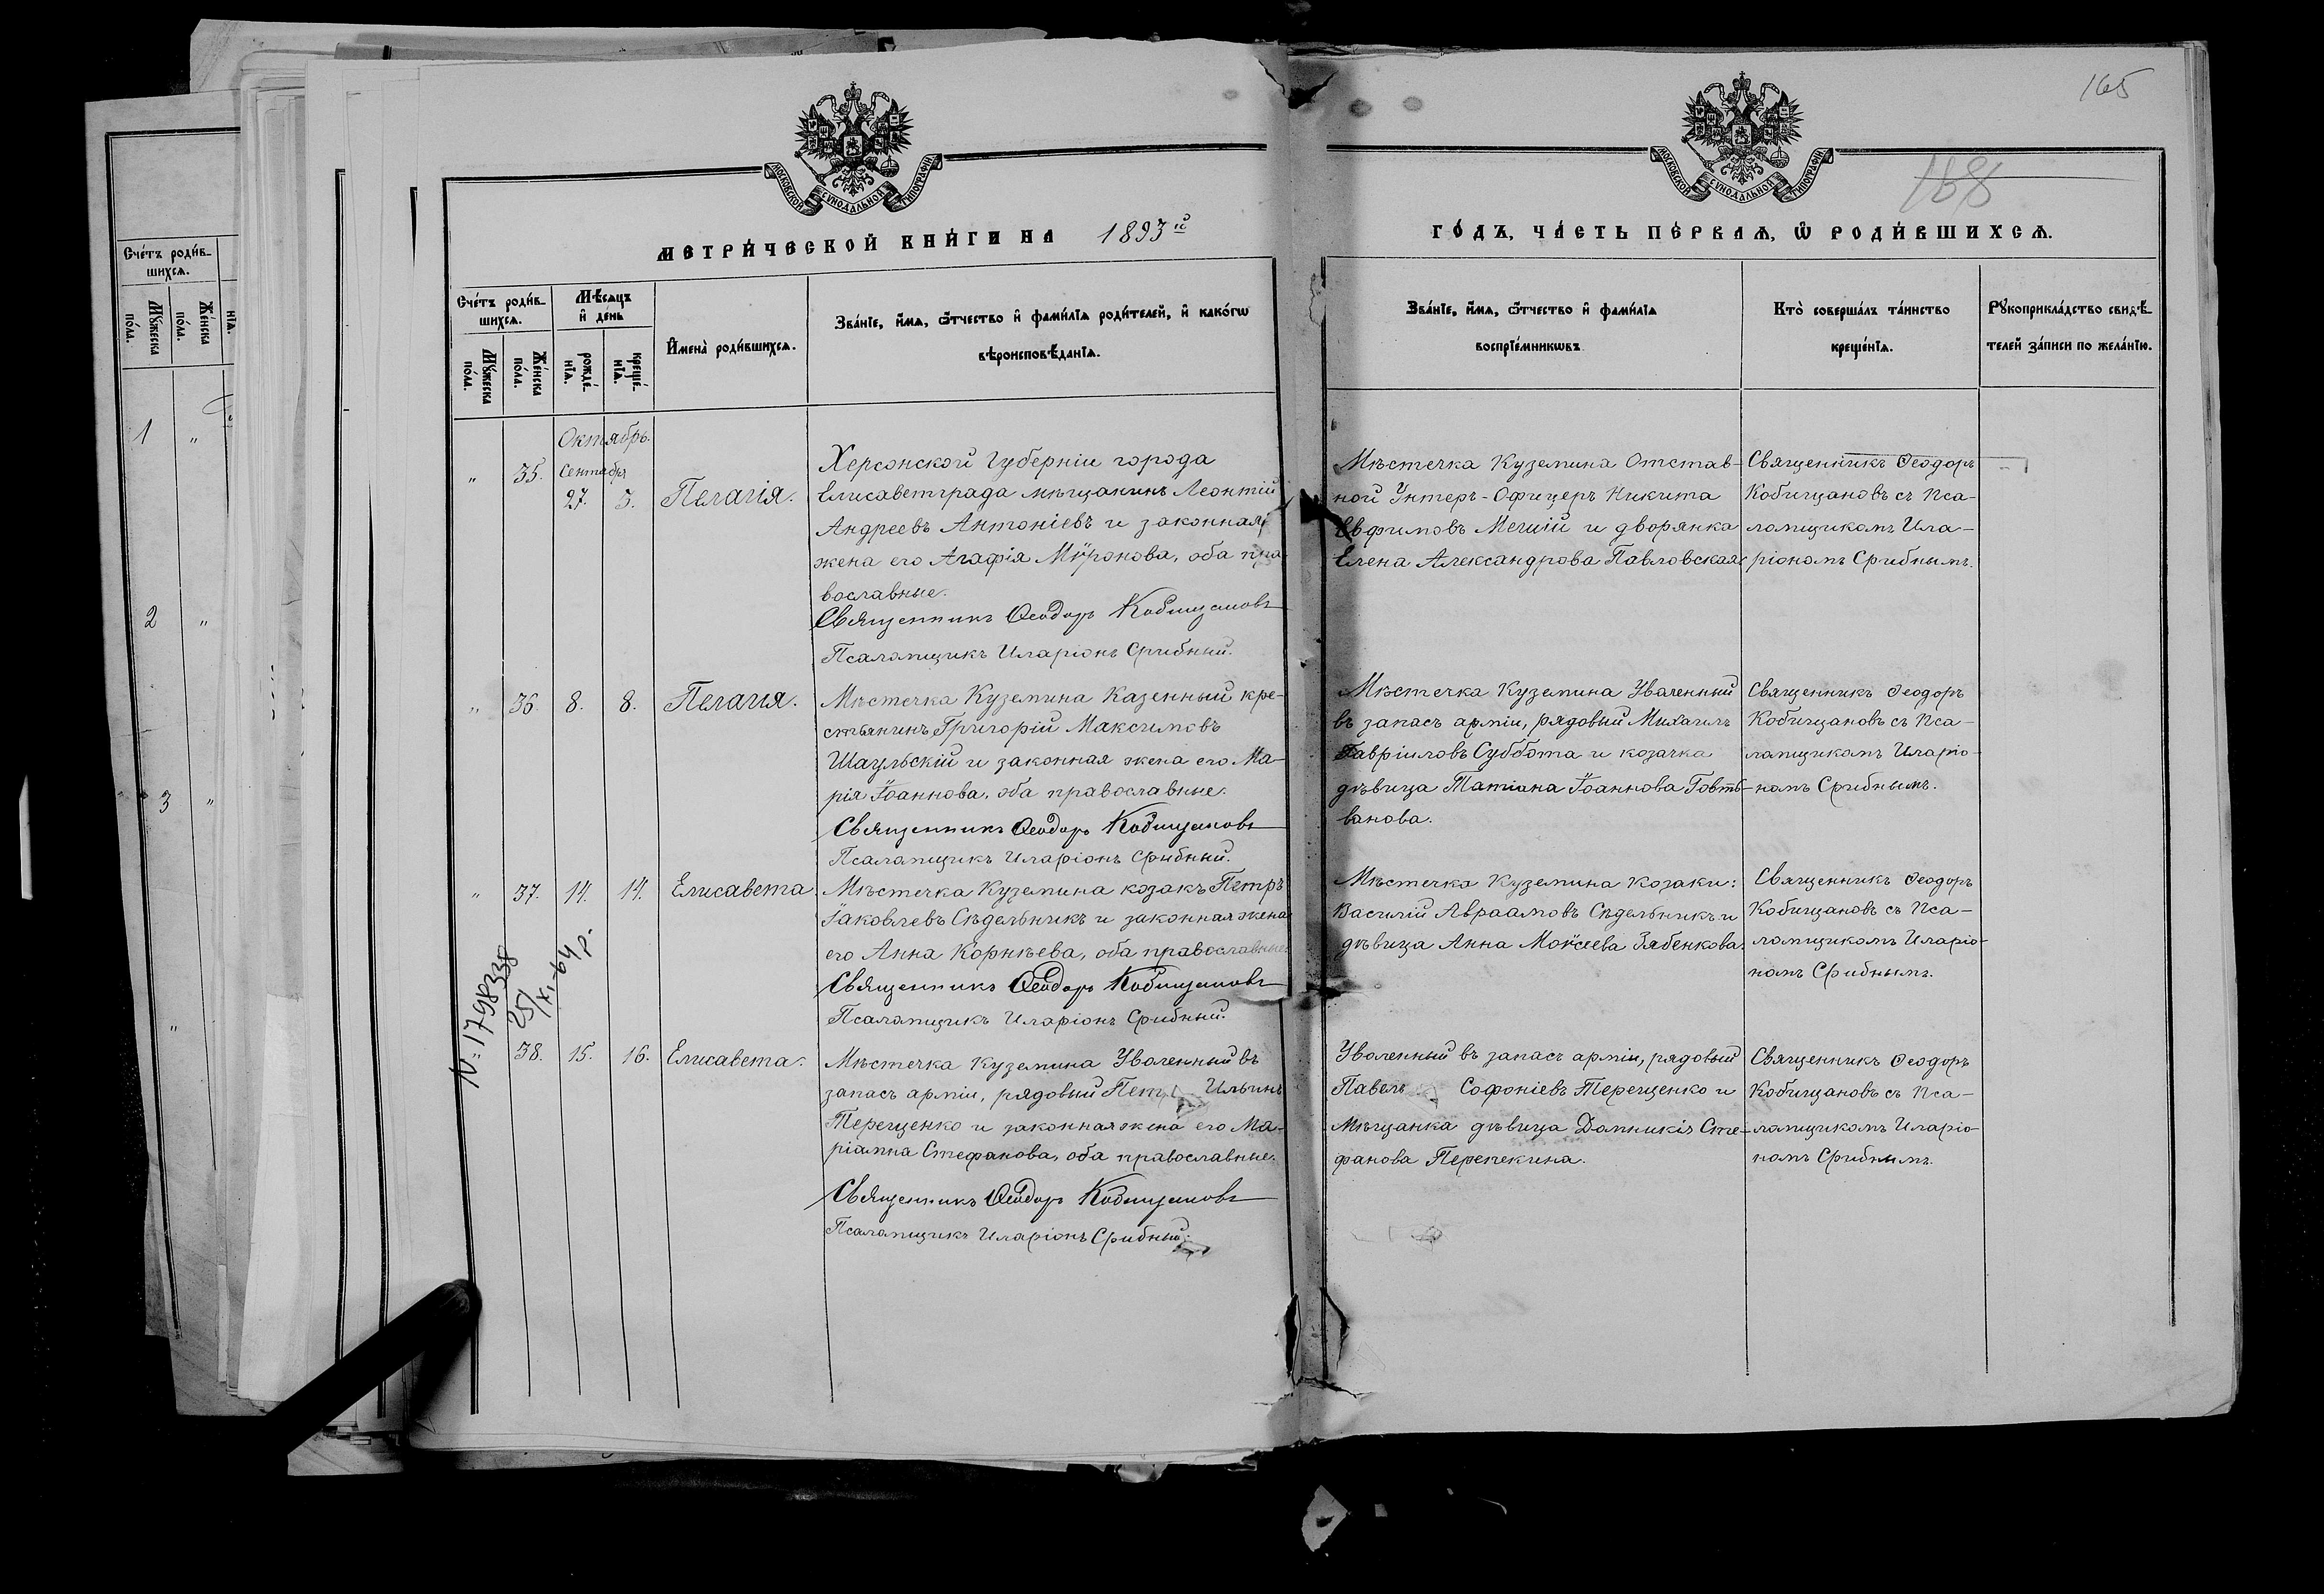 165
168
МОСКОВСКОЙ СѴНОДАЛЬНОЙ ТИПОГРАФІИ
МОСКОВСКОЙ СѴНОДАЛЬНОЙ ТИПОГРАФІИ
МЕТРИ́ЧЕСКОЙ КНИ́ГИ НА 1893 й
ГО́ДЪ, ЧА́СТЬ ПЕ́РВАѦ, Ѿ РОДИ́ВШИХСѦ.
Сче́тъ роди́в-
шихсѧ.
Мꙋ́жеска по́ла.
Же́нска по́ла.
нїѧ.
1 "
2 "
3 "
"
Сче́тъ роди́в-
шихсѧ.
Мꙋ́жеска по́ла.
Же́нска по́ла.
Мѣ́сѧцъ
и҆ де́нь
рожде́-
нїѧ.
креще́-
нїѧ.
И҆мена̀ роди́вшихсѧ.
Зва́нїе, и҆́мѧ, ѻ҆́тчество и҆ фами́лїѧ роди́телей, и҆ како́гѡ
вѣроисповѣ́данїѧ.
Зва́нїе, и҆́мѧ, ѻ҆́тчество и҆ фами́лїѧ
воспрїе́мникѡвъ.
Кто̀ соверша́лъ та́инство
креще́нїѧ.
Рꙋкоприкла́дство свидѣ́-
телей за́писи по жела́нїю.
Октябрь.
" 35. Сентября
27. 3. Пелагія.
Херсонской Губерніи города
Елисаветграда мѣщанинъ Леонтій
Андреевъ Антоніевъ и законная
жена его Агафія Мѵронова, оба пра-
вославные.
Священникъ Ѳеодоръ Кобищановъ
Псаломщикъ Иларіонъ Срибный.
Мѣстечка Куземина Отстав-
ной Унтеръ-Офицеръ Никита
Евфимовъ и дворянка
Елена Александрова Павловская
Священникъ Ѳеодоръ
Кобищановъ съ Пса-
ломщикомъ Ила-
ріономъ Срибнымъ.
" 36. 8. 8. Пелагія.
Мѣстечка Куземина Казенный кре-
стьянинъ Григорій Максимовъ
Шаульскій и законная жена его Ма-
рія Іоаннова, оба православные.
Священникъ Ѳеодоръ Кобищановъ
Псаломщикъ Иларіонъ Срибный.
Мѣстечка Куземина Уволенный
въ запасъ арміи, рядовый Михаилъ
Гавріиловъ Суббота и козачка
дѣвица Татіана Іоаннова Говтв-
ванова.
Священникъ Ѳеодоръ
Кобищановъ съ Пса-
ломщикомъ Иларіо-
номъ Срибнымъ.
" 37. 14. 14. Елисавета.
Мѣстечка Куземина козакъ Петръ
Іаковлевъ Сѣдельникъ и законная жена
его Анна Корнѣева, оба православные.
Священникъ Ѳеодоръ Кобищановъ
Псаломщикъ Иларіонъ Срибный.
Мѣстечка Куземина Козаки:
Василій Авраамовъ Сѣдельникъ и
дѣвица Анна Моѵсеева Зябенкова.
Священникъ Ѳеодоръ
Кобищановъ съ Пса-
ломщикомъ Иларіо-
номъ Срибнымъ.
N: 1798338
25/XI-64 р.
" 38. 15. 16. Елисавета.
Мѣстечка Куземина Уволенный въ
запасъ арміи, рядовый Петръ Ильинъ
Терещенко и законная жена его Ма-
ріамна Стефанова, оба православные.
Священникъ Ѳеодоръ Кобищановъ
Псаломщикъ Иларіонъ Срибный.
Уволенный въ запасъ арміи, рядовый
Павелъ Софоніевъ Терещенко и
Мѣщанка дѣвица Домникія Сте-
фанова Перепекина.
Священникъ Ѳеодоръ
Кобищановъ съ Пса-
ломщикомъ Иларіо-
номъ Срибнымъ.